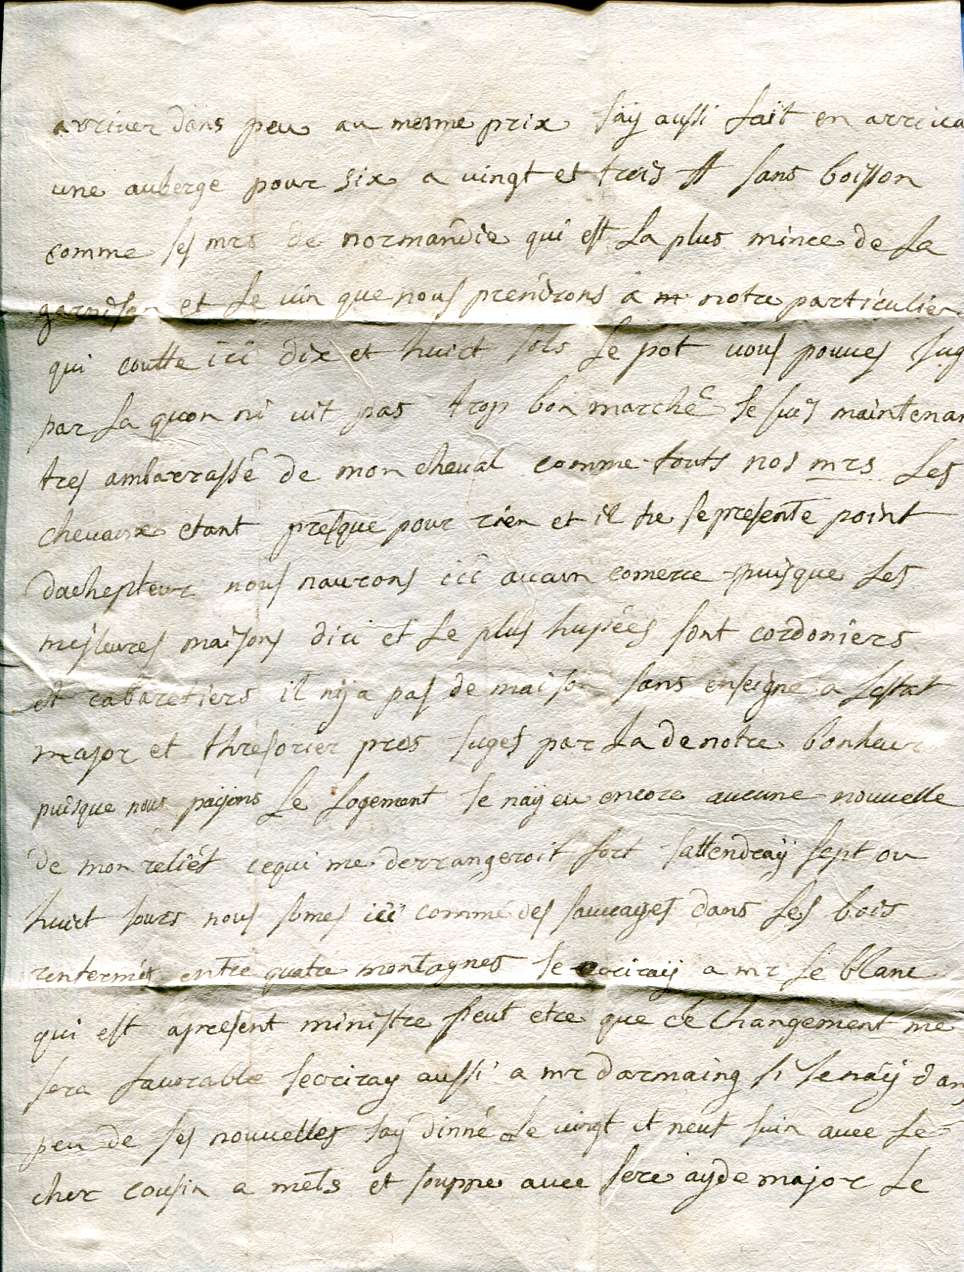 arriver dans peu au mesme prix Jaÿ aussi fait en arriva
une auberge pour six a vingt et trois ₶ sans boisson
comme ses mrs de normandie qui est La plus mince de La
garnison et Le vin que nous prendrons a notre particulier
qui coutte ici dix et huict sols Le pot vous pouves Jug
par La quon ni vit pas trop bon marché Je suis maintenan
tres ambarrassé de mon cheval comme touts nos mrs Les
chevaux etant presque pour rien et il ne se presente point
dachepteur nous naurons ici aucun comerce puisque Les
mejleures maisons dici et Le plus hupées sont cordoniers
et cabaretiers il nÿ a pas de maison sans enseigne a Lestat
major et thresorier pres Juges par La de notre bonheur
puisque nous paÿons Le Logement Je naÿ eu encore aucune nouvelle
de mon cequi me derrangeroit fort Jattendraÿ sept ou
huict Jours nous somes ici comme des sauvages dans Les bois
renfermés entre quatre montagnes Je ecriraÿ a mr Le blanc
qui est apresent ministre peut etre que ce changement me
sera favorable Jecriray aussi a mr darmaing si Je naÿ dan
peu de ses nouvelles Jaÿ dinné Le vingt et neuf Juin avec Le
cher cousin a mets et souppe avec aÿde major Le